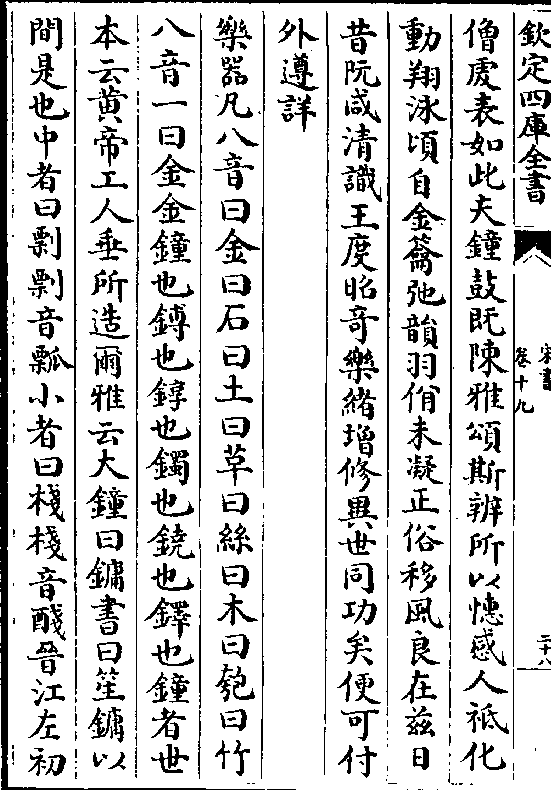 欽定四庫全書
宋書
卷十九
二十八
僧虔表如此夫鐘鼓既陳雅頌斯辨所以憓感人祗化
動翔泳頃自金籥弛韻羽佾未凝正俗移風良在兹日
昔阮咸清識王度昭奇樂緒増修異世同功矣便可付
外遵詳
樂器凡八音曰金曰石曰土曰草曰絲曰木曰匏曰竹
八音一曰金金鐘也鎛也錞也鐲也鐃也鐸也鐘者世
本云黄帝工人垂所造爾雅云大鐘曰鏞書曰笙鏞以
間是也中者曰剽剽音瓢小者曰棧棧音醆晉江左初